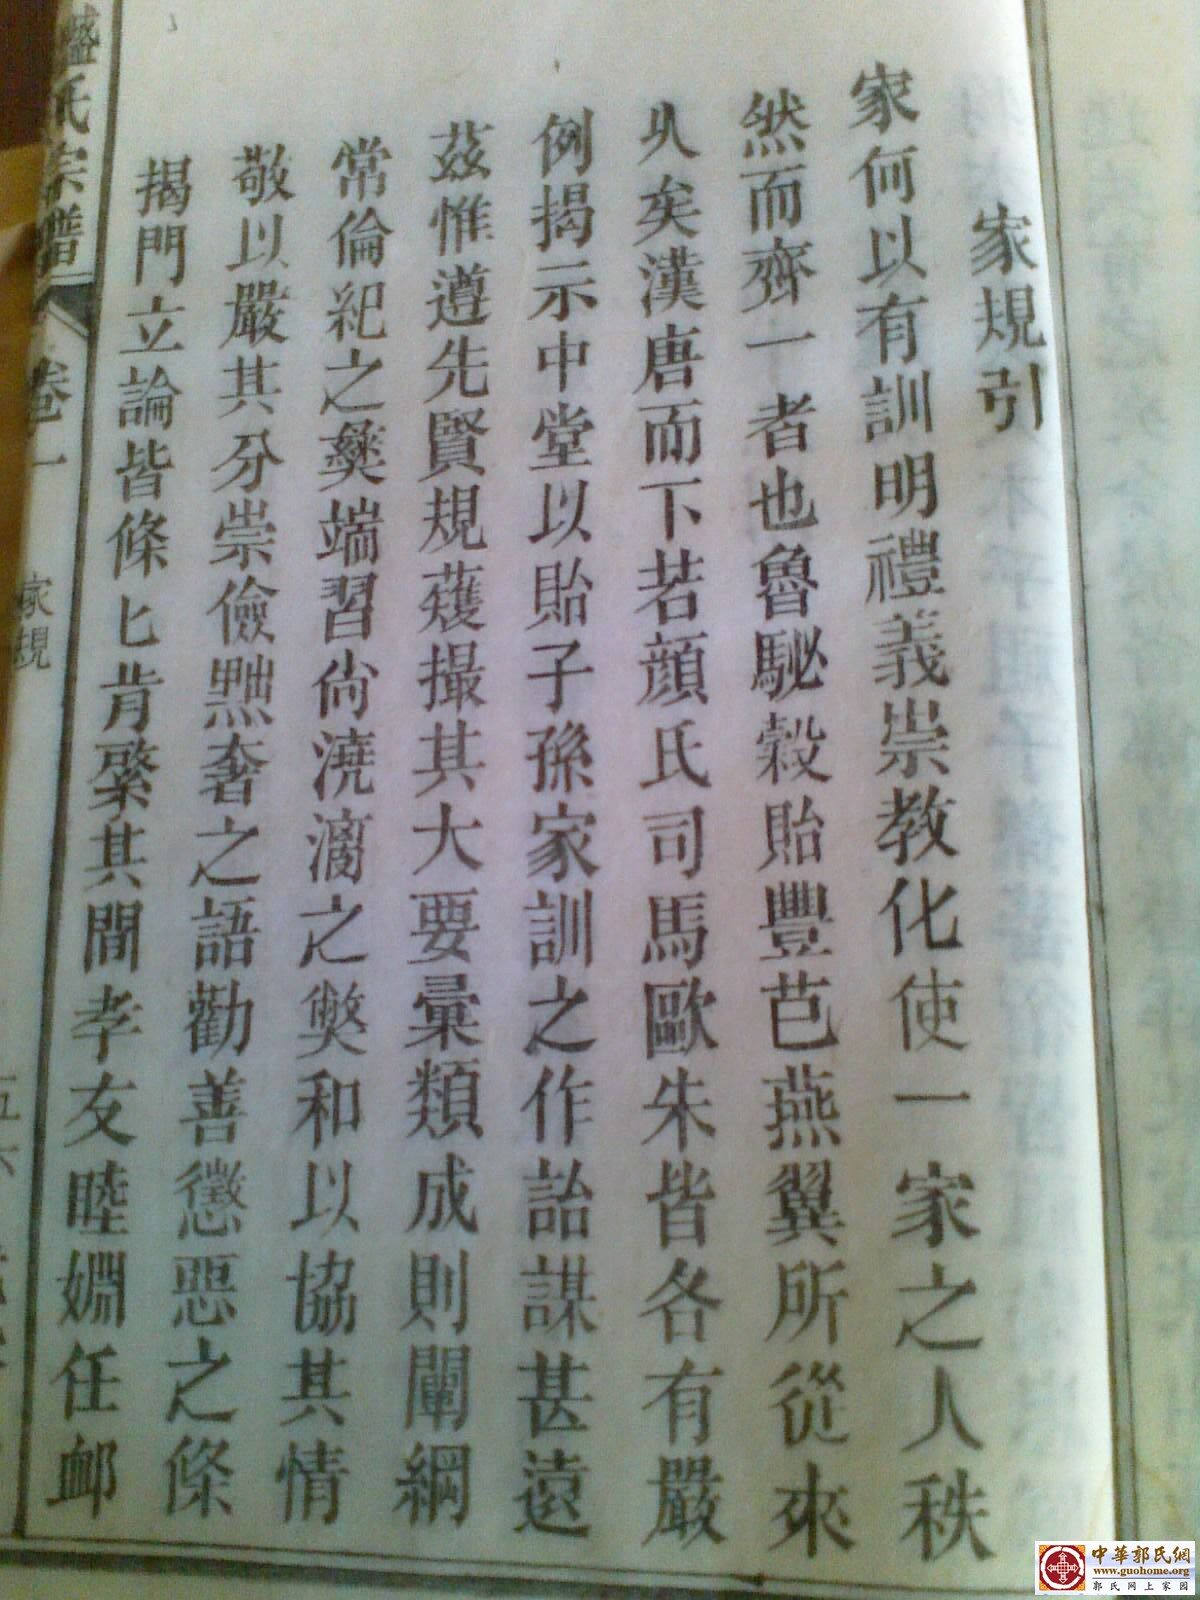 家規引
家何以有訓明禮義崇教化使一家之人秩
然而齊一者也魯駜穀貽豐芑燕翼所從來
乆矣漢唐而下若顔氏司馬歐朱皆各有嚴
例揭示中堂以貽子孫家訓之作詒謀甚遠
茲惟遵先賢規蒦撮其大要彙類成則闡綱
常倫紀之彝端習尙澆漓之獘和以協其情
敬以嚴其分崇儉黜奢之語勸善懲惡之條
揭門立論皆條匕肯綮其間孝友睦婣任卹
盛氏宗譜 卷一 家規
中華郭氏網
www.guohome.org
郭氏网上家园